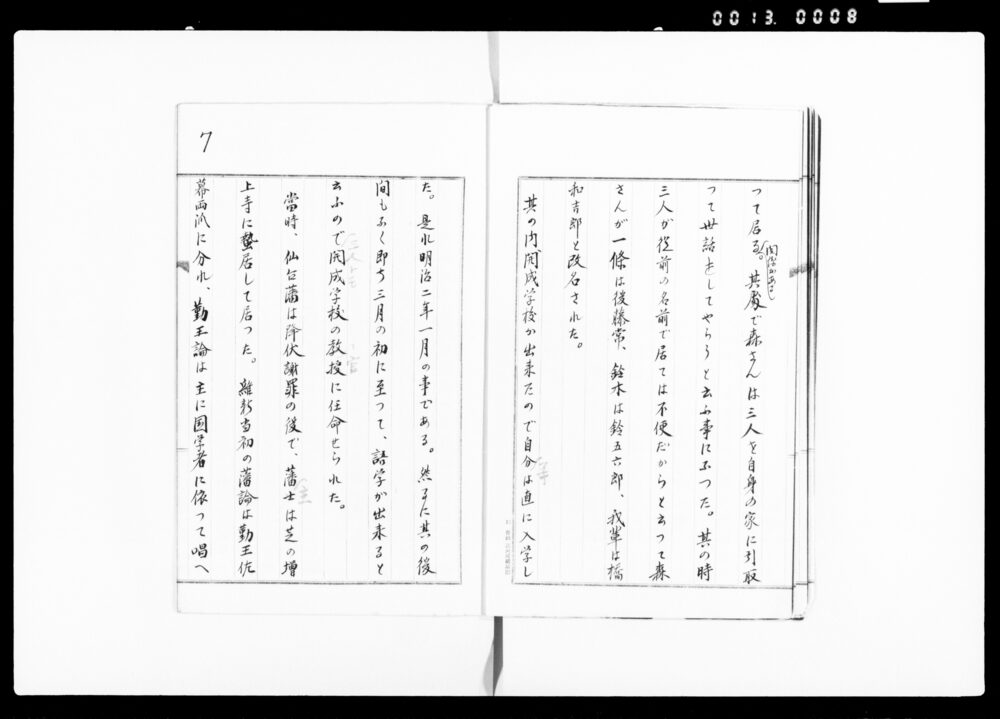 0013 0008
つて居る。其處で森さんは三人を自身の家に引取
つて世話をしてやらうと云ふ事になつた。其の時
三人が従前の名前で居ては不便だからと云つて森
さんが一條は後藤常、鈴木は鈴五六郎、我輩は橋
和吉郎と改名された。
其の内開成学校が出来たので自分は直に入学し
た。是れ明治二年一月の事である。然るに其の後
間もなく即ち三月の初に至つて、語学が出来ると
云ふので開成学校の教授に任命せられた。
當時、仙台藩は降伏謝罪の後で、藩士は芝の増
上寺に蟄居して居つた。維新当初の藩論は勤王佐
幕両派に分れ、勤王論は主に国学者に依つて唱へ
7